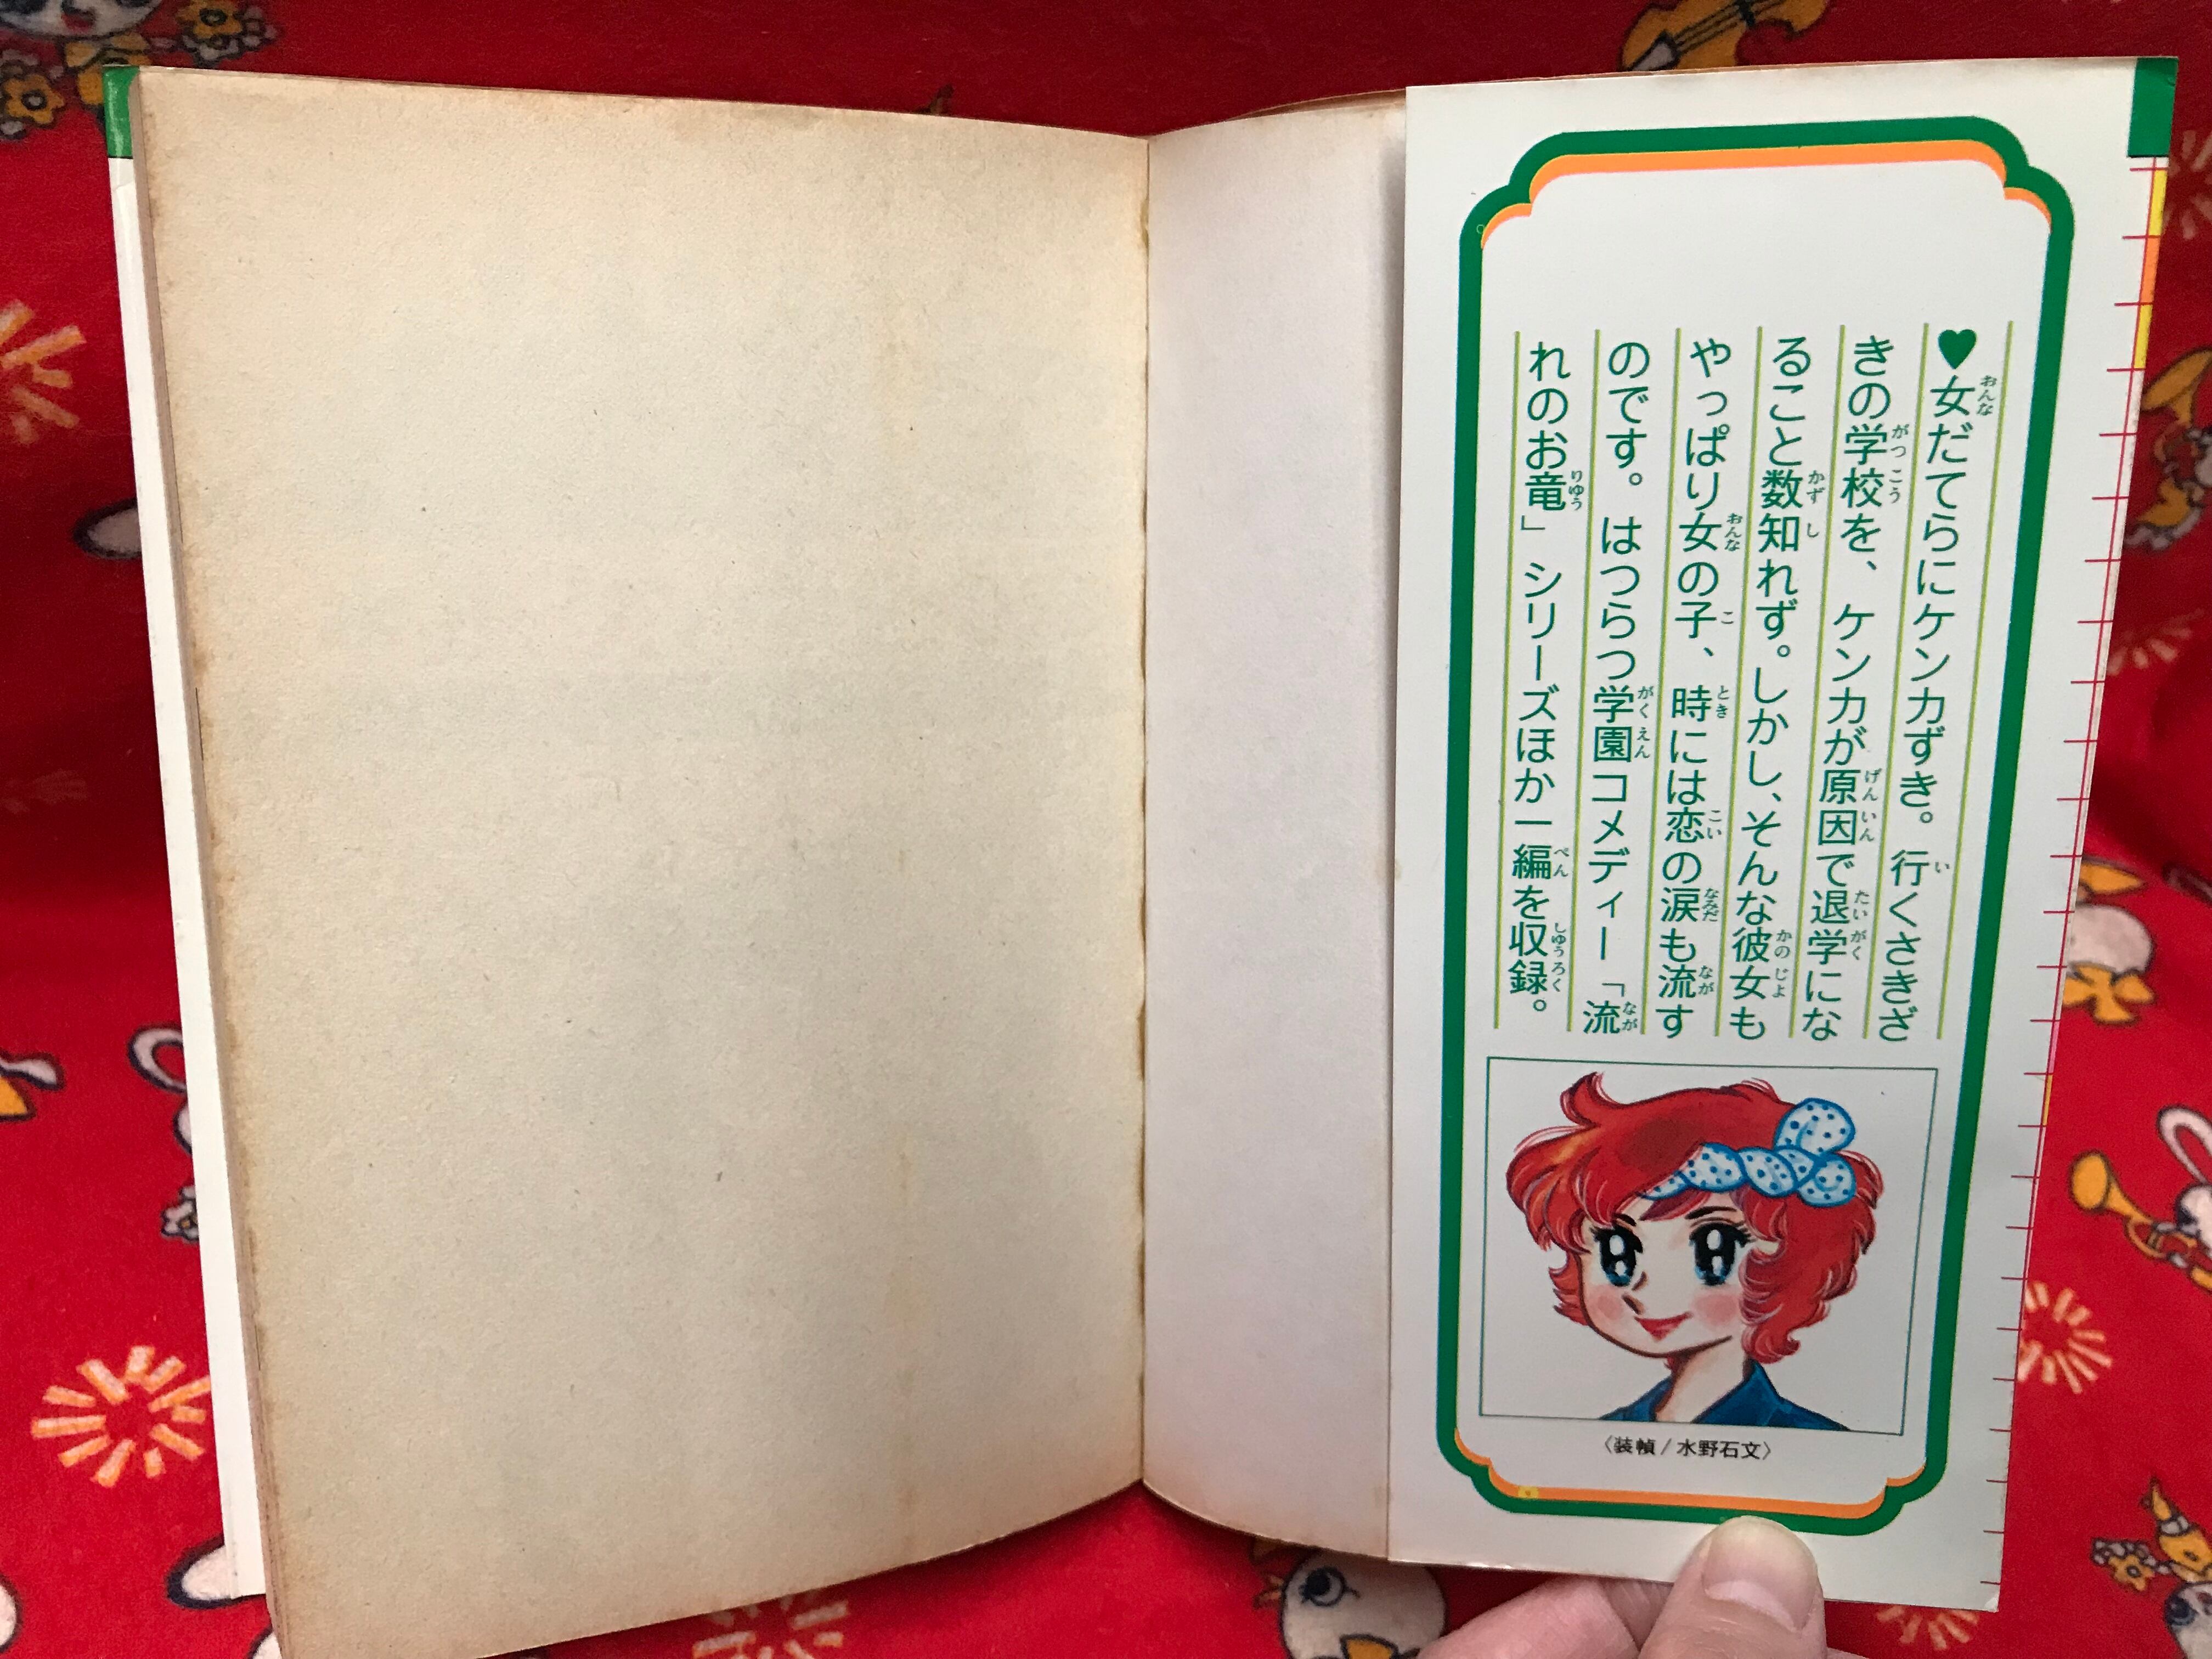 ♥女だてらにケンカずき。行くさきざ
きの学校を、ケンカが原因で退学にな
ること数知れず。しかし、そんな彼女も
やっぱり女の子、時には恋の涙も流す
のです。はつらつ学園コメディー「流
れのお竜」シリーズほか一編を収録。
〈装幀/水野石文〉